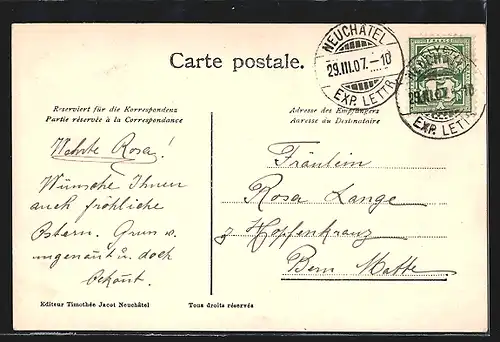 Carte postale.
NEUCHÂTEL
29.III.07.-10
EXP. LETTR.
FRANCO
NEUCHÂTEL
29.III.07.-10
EXP. LETTR.
Reserviert für die Korrespondenz
Partie réservée à la Correspondance
Adresse des Empfängers
Adresse du Destinataire
Werte Rosa!
Wünsche Ihnen
auch fröhliche
Ostern. Gruss v.
ungenannt u. doch
bekannt.
Fräulein
Rosa Lange
z Hopfenkranz
Bern Matte
Editeur Timothée Jacot Neuchâtel
Tous droits réservés